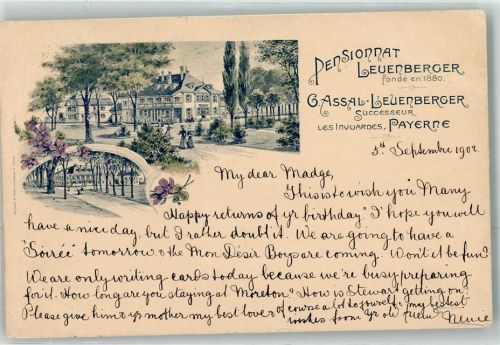 PENSIONNAT
LEUENBERGER
fondé en 1880.
G. ASSAL-LEUENBERGER
SUCCESSEUR
LES INVUARDES, PAYERNE
5th Septembre 1902
My dear Madge,
This is to wish you "Many
Happy returns of yr birthday." I hope you will
have a nice day but I rather doubt it. We are going to have a
"Soirée" tomorrow & the Mon Désir Boys are coming. Won't it be fun?
We are only writing cards today because we're busy preparing
for it. How long are you staying at Moreton? How is Stewart getting on.
Please give him & yr mother my best love & of course a lot to yourself & my best
wishes from yr old